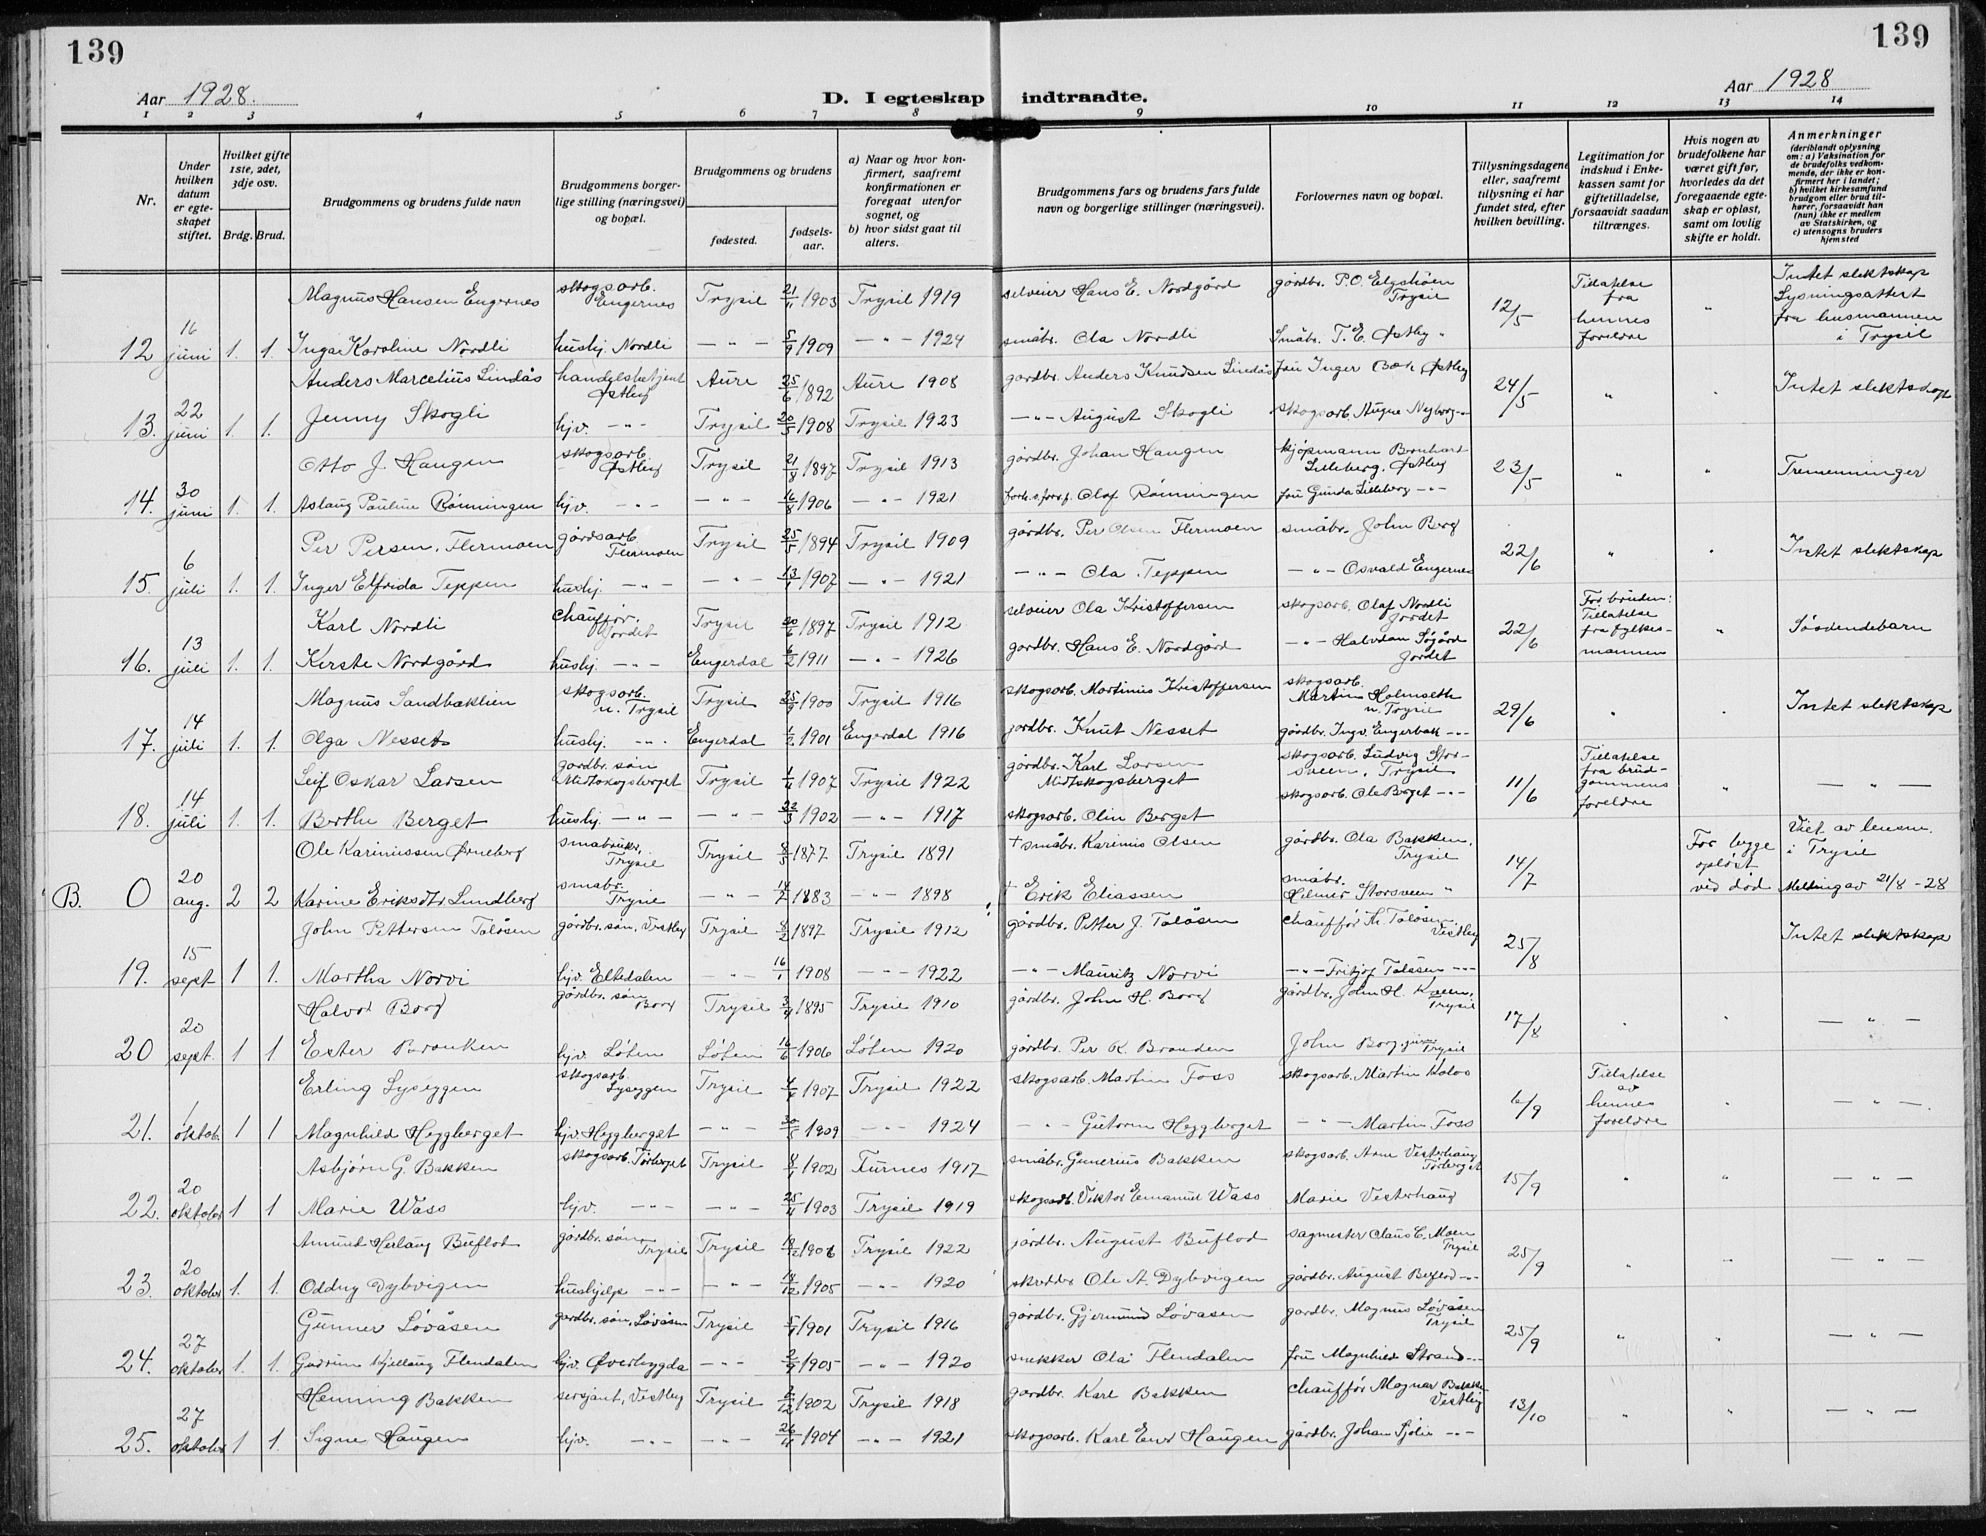 139
139
Aar 1928.
D. I egteskap indtraadte.
Aar 1928
1 2 3 4 5 6 7 8 9 10 11 12 13 14
Nr.
Under hvilken datum er egteskapet stiftet.
Hvilket gifte 1ste, 2det, 3dje osv.
Brdg. Brud.
Brudgommens og brudens fulde navn
Brudgommens borgerlige stilling (næringsvei) og bopæl.
Brudgommens og brudens
fødested. fødselsaar.
a) Naar og hvor konfirmert, saafremt konfirmationen er foregaat utenfor sognet, og
b) hvor sidst gaat til alters.
Brudgommens fars og brudens fars fulde navn og borgerlige stillinger (næringsvei).
Forlovernes navn og bopæl.
Tillysningsdagene eller, saafremt tillysning ei har fundet sted, efter hvilken bevilling.
Legitimation for indskud i Enkekassen samt for giftetilladelse, forsaavidt saadan tiltrænges.
Hvis nogen av brudefolkene har været gift før, hvorledes da det foregaaende egteskap er opløst, samt om lovlig skifte er holdt.
Anmerkninger (deriblandt oplysning om: a) Vaksination for de brudefolks vedkommende, der ikke er konfirmert her i landet; b) hvilket kirkesamfund brudgom eller brud tilhører, forsaavidt han (hun) ikke er medlem av Statskirken, og c) utensogns bruders hjemsted
Magnus Hansen Engernes skogsarb. Engernes Trysil 21/11 1903 Trysil 1919 selveier Hans E. Nordgård gårdbr. P.O. Elgshøen Trysil 12/5 Tilatelse fra hennes foreldre " Intet slektskap Lysningsattest fra husmannen i Trysil
12 16 juni 1. 1. Inga Karoline Nordli hushj. Nordli — " — 5/9 1909 — " — 1924 småbr. Ola Nordli Småbr. T. E. Østby "
Anders Marcelius Lindås handelsbetjent Østby Aure 25/6 1892 Aure 1908 gårdbr. Anders Knudsen Lindås fru Inger Bak Østby 24/5 " " Intet slektskap
13. 22 juni 1. 1. Jenny Skogli hjv. — " — Trysil 20/5 1908 Trysil 1923 — " — August Skogli skogsarb. August Nyborg — " —
Otto J. Haugen skogsarb. Østby Trysil 21/8 1897 Trysil 1913 gårdbr. Johan Haugen kjøpmann Bernhard Lilleberg, Østby 23/5 " " Tremenninger
14. 30 juni 1. 1. Aslaug Pauline Rønningen hjv. — " — — " — 16/8 1906 — " — 1921 Olaf Rønningen fru Gunda Lilleberg — " —
Per Persen Flermoen gårdsarb. Flermoen Trysil 25/5 1894 Trysil 1909 gårdbr. Per Olsen Flermoen småbr. John Berg 22/6 " " Intet slektskap
15. 6 juli 1. 1. Inger Elfrida Teppen hushj. — " — — " — 13/1 1907 — " — 1921 — " — Ola Teppen — " — Osvald Engernes
Karl Nordli chauffør. Jordet Trysil 20/6 1897 Trysil 1912 selveier Ola Kristoffersen skogsarb. Olaf Nordli Jordet 22/6 For bruden: Tilatelse fra fylkesmannen " Søsdendebarn
16. 13 juli 1. 1. Kirste Nordgård hushj. — " — Engerdal 6/2 1911 — " — 1926 gårdbr. Hans E. Nordgård — " — Halvdan Søgård Jordet
Magnus Sandbæklien skogsarb. n. Trysil Trysil 25/9 1900 Trysil 1916 skogsarb. Martinus Kristoffersen skogsarb. Martin Holmseth n. Trysil 29/6 " " Intet slektskap
17. 14 juli 1. 1. Olga Nesset hushj. — " — Engerdal 1/2 1901 Engerdal 1916 gårdbr. Knut Nesset gårdbr. Ingv. Engerbak — " —
Leif Oskar Larsen gårdbr. søn Midtskogsberget Trysil 1/4 1907 Trysil 1922 gårdbr. Karl Larsen Midtskogsberget skogsarb. Ludvig Storsveen, Trysil 11/6 Tilatelse fra brudgommens foreldre " — " —
18. 14 juli 1. 1. Berthe Berget hushj. — " — — " — 22/3 1902 — " — 1917 skogsarb. Olin Berget skogsarb. Ole Berget — " —
Ole Karinussen Ørneberg småbruker, Trysil Trysil 8/5 1877 Trysil 1891 + småbr. Karinus Olsen gårdbr. Ola Bakken, Trysil 14/7 For begge opløst ved død Viet av lensm. i Trysil Melding av 21/8 - 28
B. 0 20 aug. 2 2 Karine Eriksdtr. Lundberg småbr. Trysil — " — 14/2 1883 — " — 1898 + Erik Eliassen småbr. Hilmar Storsveen "
John Pettersen Taløsen gårdbr. søn, Vestby Trysil 8/2 1897 Trysil 1912 gårdbr. Petter J. Taløsen chauffør Th. Taløsen, Vestby 25/8 Intet slektskap
19. 15 sept 1 1. Martha Norvi hjv. Eltdalen — " — 16/1 1908 — " — 1922 — " — Mauritz Norvi — " — Fritjof Taløsen — " —
Halvor Borg gårdbr. søn Borg Trysil 3/4 1895 Trysil 1910 gårdbr. John H. Borg gårdbr. John H. Kveen, Trysil 17/8 " " — " —
20 20 sept. 1 1 Ester Brenden hjv. Løten Løten 16/6 1906 Løten 1920 gårdbr. Per K. Brenden John Borg, jun. Trysil
Erling Lyseggen skogsarb. Lyseggen Trysil 4/4 1907 Trysil 1922 skogsarb. Martin Foss skogsarb. Martin Kolos 6/9 Tilatelse av hennes foreldre " — " —
21. 1 oktob. 1 1 Magnhild Heggberget hjv. Heggberget — " — 30/5 1909 — " — 1924 — " — Gutorm Heggberget — " — Martin Foss
Asbjørn G. Bakken skogsarb. Tørberget Trysil 4/1 1902 Furnes 1917 småbr. Gunerius Bakken skogsarb. Arne Vesterhaug Tørberget 15/9 " " — " —
22. 20 oktober 1 1 Marie Wass hjv. — " — — " — 25/11 1903 Trysil 1919 skogsarb. Viktor Emanuel Wass Marie Vesterhaug
Amund Herlaug Buflod gårdbr. søn Trysil Trysil 18/12 1906 Trysil 1922 gårdbr. August Buflod sagmester Claus C. Moen Trysil 25/9 " " — " —
23. 20 oktober 1. 1. Oddny Dybvigen hushjelp — " — — " — 14/12 1905 — " — 1920 skredder Ole A. Dybvigen gårdbr. August Buflod — " —
Gunner Løvåsen gårdbr. søn, Løvåsen Trysil 5/4 1901 Trysil 1916 gårdbr. Gjermund Løvåsen gårdbr. Magnus Løvåsen Trysil 25/9 " " — " —
24. 27 oktober 1. 1. Gudrun Kjellaug Flendalen hjv. Øverbygda — " — 2/9 1905 — " — 1920 snekker Olai Flendalen fru Magnhild Strand — " —
Henning Bakken sersjant, Vestby Trysil 2/12 1902 Trysil 1918 gårdbr. Karl Bakken chauffør Magnar Bakken Vestby 13/10 " " — " —
25. 27 oktober 1 1. Signe Haugen hjv. — " — — " — 26/11 1904 — " — 1921 skogsarb. Karl Enar Haugen gårdbr. Johan Sjøli — " —